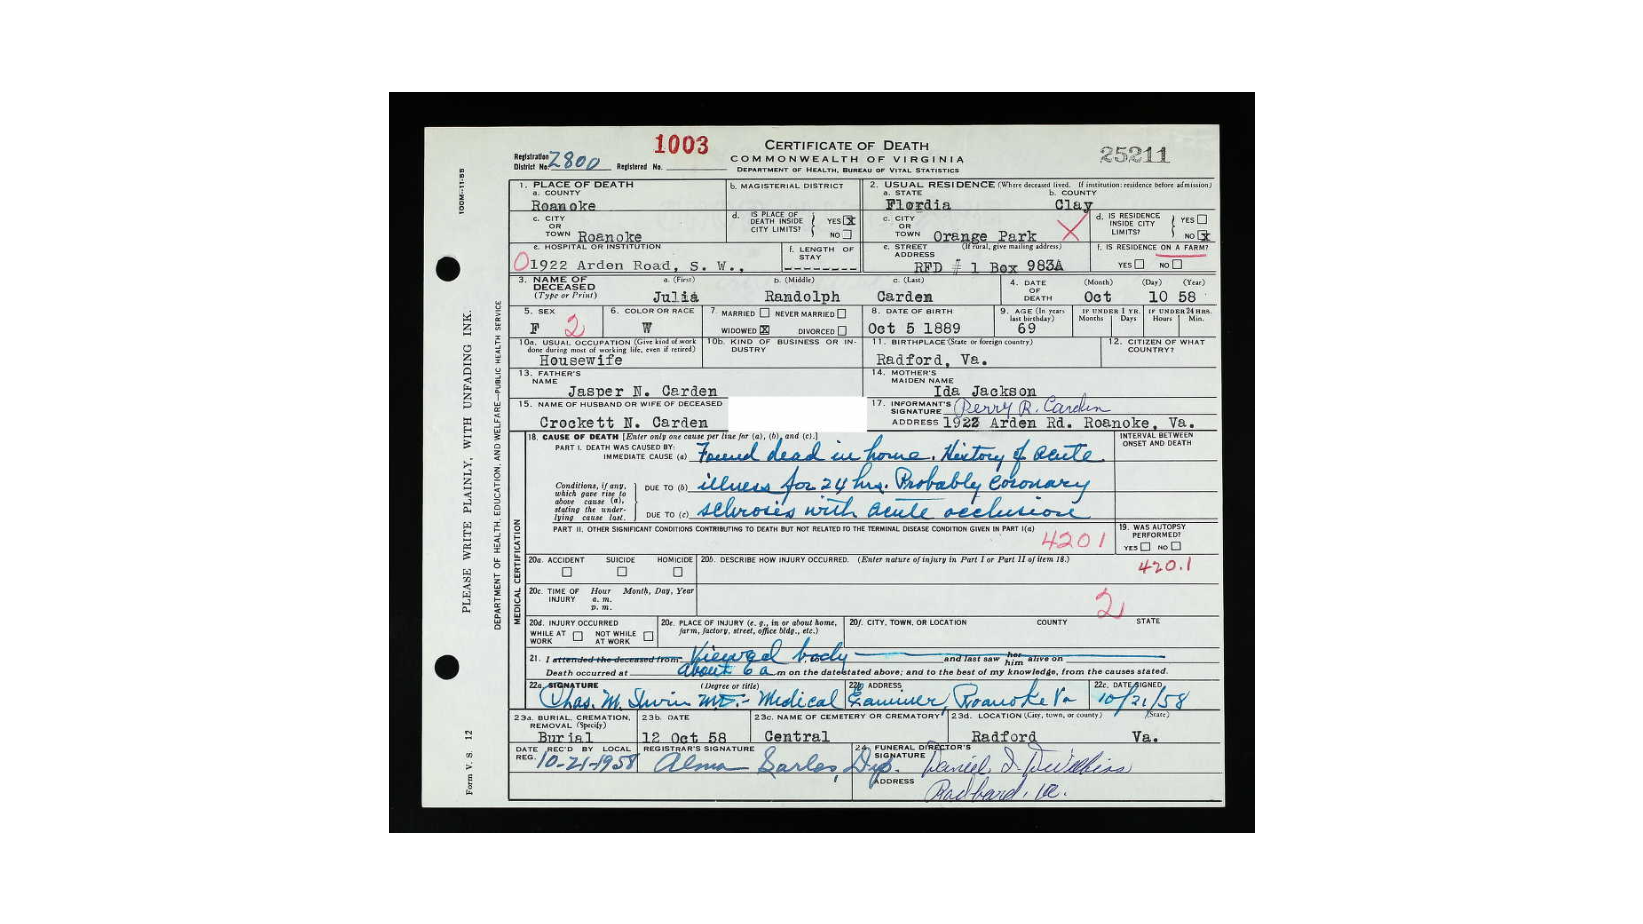 1003
CERTIFICATE OF DEATH
COMMONWEALTH OF VIRGINIA
DEPARTMENT OF HEALTH, BUREAU OF VITAL STATISTICS
25211
Registration District No. 2800 Registered No.
100M-11-55
PLEASE WRITE PLAINLY, WITH UNFADING INK.
DEPARTMENT OF HEALTH, EDUCATION, AND WELFARE—PUBLIC HEALTH SERVICE
Form V. S. 12
1. PLACE OF DEATH
a. COUNTY
Roanoke
b. MAGISTERIAL DISTRICT
2. USUAL RESIDENCE (Where deceased lived. If institution: residence before admission)
a. STATE b. COUNTY
Flordia Clay
c. CITY OR TOWN Roanoke
d. IS PLACE OF DEATH INSIDE CITY LIMITS? YES X NO
c. CITY OR TOWN Orange Park
d. IS RESIDENCE INSIDE CITY LIMITS? YES NO X
e. HOSPITAL OR INSTITUTION
1922 Arden Road, S. W.,
f. LENGTH OF STAY
--------
e. STREET ADDRESS (If rural, give mailing address)
RFD # 1 Box 983A
f. IS RESIDENCE ON A FARM?
YES NO
3. NAME OF DECEASED (Type or Print)
a. (First) b. (Middle) c. (Last)
Julia Randolph Carden
4. DATE OF DEATH (Month) (Day) (Year)
Oct 10 58
5. SEX
F 2
6. COLOR OR RACE
W
7. MARRIED NEVER MARRIED
WIDOWED X DIVORCED
8. DATE OF BIRTH
Oct 5 1889
9. AGE (In years last birthday)
69
IF UNDER 1 YR. Months Days
IF UNDER 24 HRS. Hours Min.
10a. USUAL OCCUPATION (Give kind of work done during most of working life, even if retired)
Housewife
10b. KIND OF BUSINESS OR INDUSTRY
11. BIRTHPLACE (State or foreign country)
Radford, Va.
12. CITIZEN OF WHAT COUNTRY?
13. FATHER'S NAME
Jasper N. Carden
14. MOTHER'S MAIDEN NAME
Ida Jackson
15. NAME OF HUSBAND OR WIFE OF DECEASED
Crockett N. Carden
17. INFORMANT'S SIGNATURE Perry R. Carden
ADDRESS 1922 Arden Rd. Roanoke, Va.
MEDICAL CERTIFICATION
18. CAUSE OF DEATH [Enter only one cause per line for (a), (b), and (c).]
INTERVAL BETWEEN ONSET AND DEATH
PART I. DEATH WAS CAUSED BY:
IMMEDIATE CAUSE (a) Found dead in home. History of acute
Conditions, if any, which gave rise to above cause (a), stating the underlying cause last.
DUE TO (b) illness for 24 hrs. Probably coronary
DUE TO (c) sclrosis with acute occlusion
PART II. OTHER SIGNIFICANT CONDITIONS CONTRIBUTING TO DEATH BUT NOT RELATED TO THE TERMINAL DISEASE CONDITION GIVEN IN PART I(a)
4201
19. WAS AUTOPSY PERFORMED?
YES NO
420.1
20a. ACCIDENT SUICIDE HOMICIDE
20b. DESCRIBE HOW INJURY OCCURRED. (Enter nature of injury in Part I or Part II of item 18.)
20c. TIME OF INJURY Hour a. m. p. m. Month, Day, Year
2
20d. INJURY OCCURRED
WHILE AT WORK NOT WHILE AT WORK
20e. PLACE OF INJURY (e. g., in or about home, farm, factory, street, office bldg., etc.)
20f. CITY, TOWN, OR LOCATION COUNTY STATE
21. I attended the deceased from Viewed body and last saw her him alive on
Death occurred at about 6 a m on the date stated above; and to the best of my knowledge, from the causes stated.
22a. SIGNATURE (Degree or title) 22b. ADDRESS 22c. DATE SIGNED
Chas. M. Irvin MD.- Medical Examiner, Roanoke Va 10/21/58
23a. BURIAL, CREMATION, REMOVAL (Specify)
Burial
23b. DATE
12 Oct 58
23c. NAME OF CEMETERY OR CREMATORY
Central
23d. LOCATION (City, town, or county) (State)
Radford Va.
DATE REC'D BY LOCAL REG. 10-21-1958
REGISTRAR'S SIGNATURE
Alma Sarles, Dep.
24. FUNERAL DIRECTOR'S SIGNATURE Daniel
ADDRESS Radford, Va.